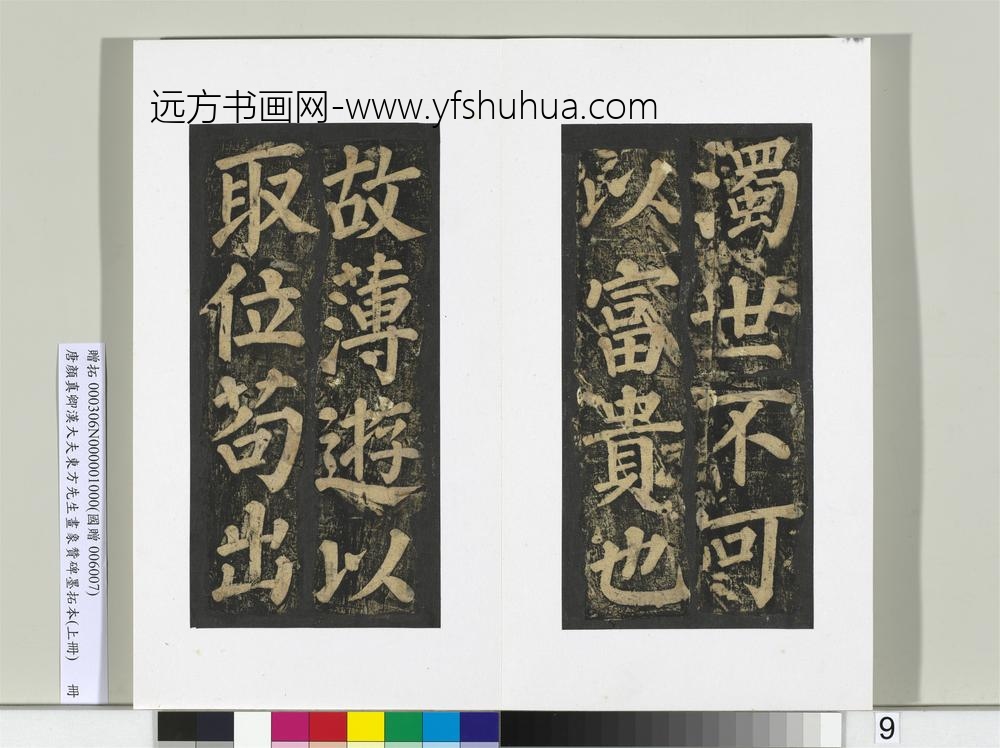 远方书画网-www.yfshuhua.com
濁世不可
以富貴也
故薄遊以
取位苟出
贈拓 000306N000001000(國贈 006007)
唐顏真卿漢大夫東方先生畫象贊碑墨拓本(上冊) 冊
9